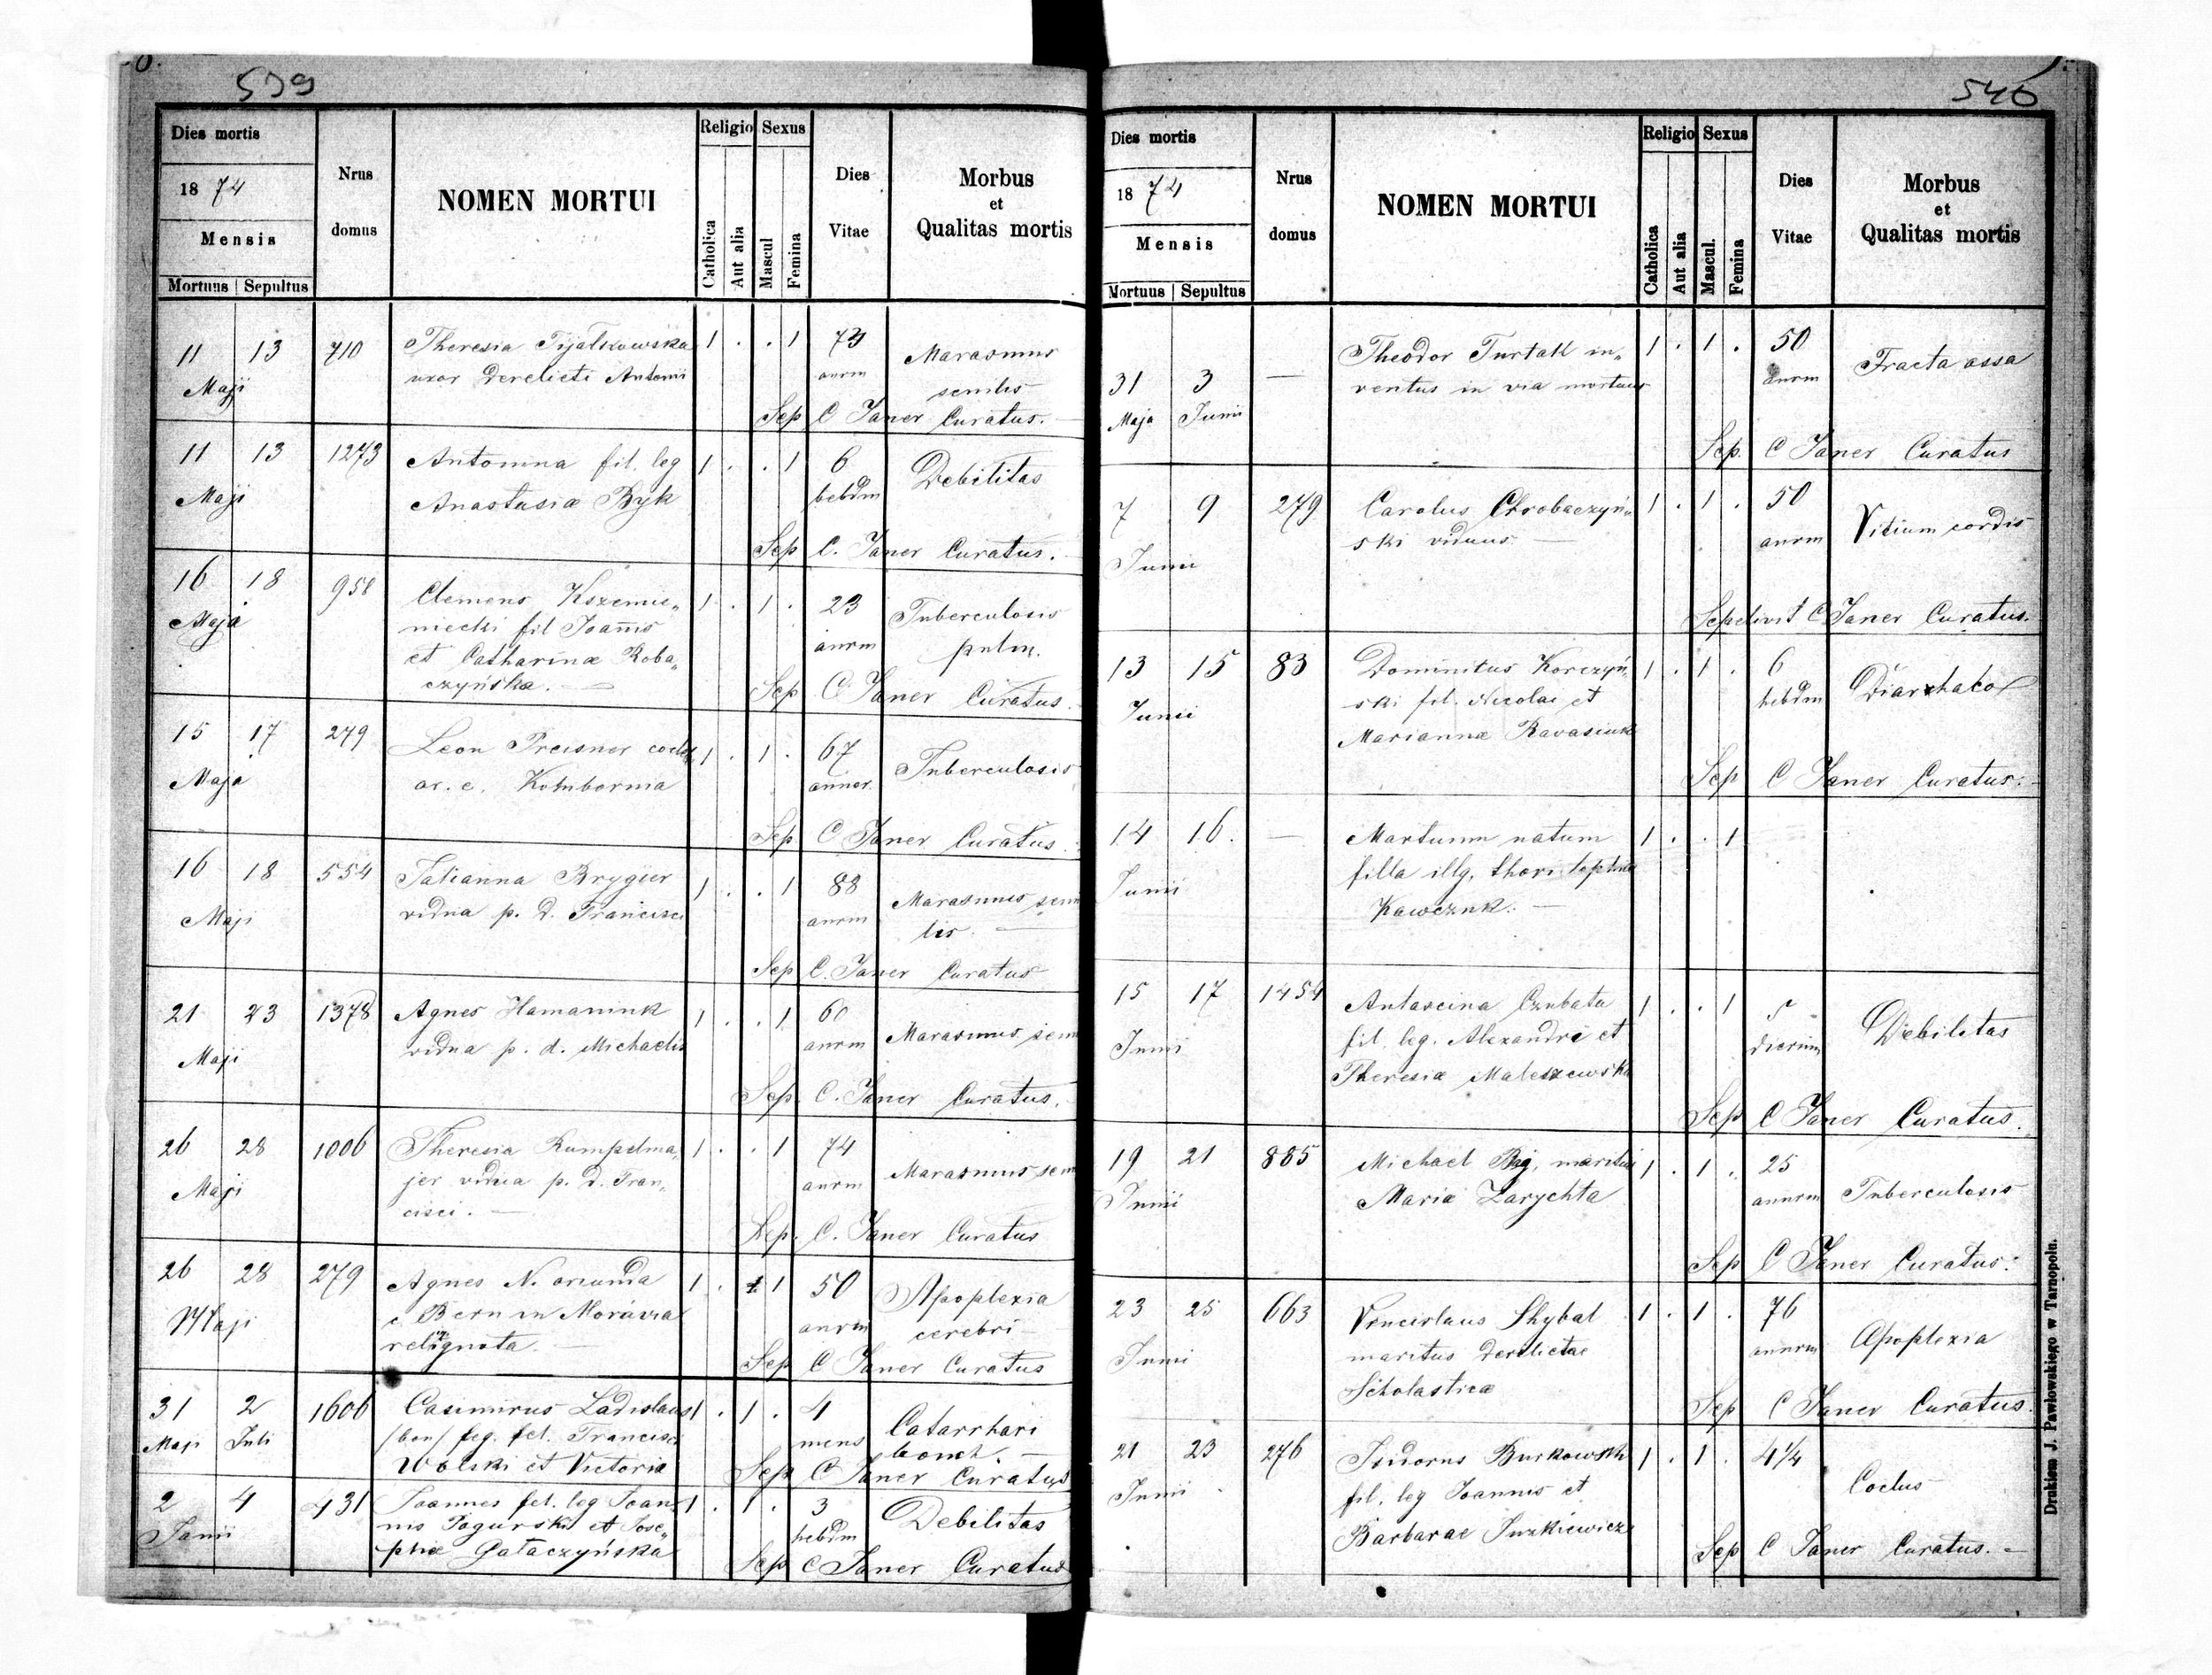 539
Dies mortis
1874
Mensis
Mortuus | Sepultus
Nrus domus
NOMEN MORTUI
Religio
Catholica
Aut alia
Sexus
Mascul
Femina
Dies Vitae
Morbus
et
Qualitas mortis
11 13 710 Theresia 1 . . 1 74 Marasmus
Maji uxor derelicti Antonii anrm senilis
Sep C Janer Curatus.
11 13 1273 Antonina fil. leg 1 . . 1 6 Debilitas
Maji Anastasiæ Byk hebdm
Sep C. Janer Curatus.
16 18 958 Clemens Kszemie„ 1 . 1 . 23 Tuberculosis
Maja niecki fil Joannis anrm pulm.
et Catharinæ Roba„
czyńska.
Sep C Janer Curatus.
15 17 279 Leon Preisner 1 . 1 . 67 Tuberculosis
Maja ar. e. annor.
Sep C Janer Curatus.
16 18 554 Tatianna Brygier 1 . . 1 88 Marasmus seni
Maji vidua p. d. Francisci anrm lis.
Sep C. Janer Curatus
21 23 1378 Agnes Hamaniuk 1 . . 1 60 Marasmus sen
Maji vidua p. d. Michaelis anrm
Sep. C. Janer Curatus.
26 28 1006 Theresia Rumpelma„ 1 . . 1 74 Marasmus sen
Maji jer vidua p. d. Fran„ anrm
cisci.
Sep. C. Janer Curatus
26 28 279 Agnes N. oriunda 1 . 1 50 Apoplexia
Maji e Bern in Moravia anrm cerebri
Sep C Janer Curatus
31 2 1606 Casimirus Ladislaus 1 . 1 . 4 Catarrhari
Maji Juli leg. fil. Francisci mens
Wolski et Victoria
Sep C Janer Curatus
2 4 431 Joannes fil. leg Joan 1 . 1 . 3 Debilitas
Junii nis Pogurski et Jose„ hebdm
phæ Gałaczyńska
Sep C Janer Curatus
546
Dies mortis
1874
Mensis
Mortuus | Sepultus
Nrus domus
NOMEN MORTUI
Religio
Catholica
Aut alia
Sexus
Mascul.
Femina
Dies Vitae
Morbus
et
Qualitas mortis
31 3 — Theodor Turtak in„ 1 . 1 . 50 Fracta ossa
Maja Junii ventus in via mortuus anrm
Sep. C Janer Curatus
7 9 279 Carolus Chrobaczyń„ 1 . 1 . 50 Vitium cordis
Junii ski viduus anrm
Sepelivit C Janer Curatus.
13 15 83 Dominitus Korczyń„ 1 . 1 . 6
Junii ski fil. Nicolae et hebdm
Mariannæ Ravasiuk
Sep C Janer Curatus.
14 16. — Mortuum natum 1 . . 1
Junii filla illg. thori Sophiæ
Kawczuk.
15 17 1454 Antascina Czubata 1 . . 1 5 Debilitas
Junii fil. leg. Alexandri et dierum
Theresiæ Maleszewska
Sep C Janer Curatus.
19 21 885 Michael Baj, maritus 1 . 1 . 25 Tuberculosis
Junii Mariæ Zarychta annrm
Sep C Janer Curatus.
23 25 663 Vencislaus Shybal 1 . 1 . 76 Apoplexia
Junii maritus derelictae annrm
Scholasticæ
Sep C Janer Curatus.
21 23 276 Isidorus Burkowski 1 . 1 . 4¼ Coctus
Junii fil. leg Joannis et
Barbarae Juzkiewicz
Sep C Janer Curatus.
Drukiem J. Pawłowskiego w Tarnopolu.